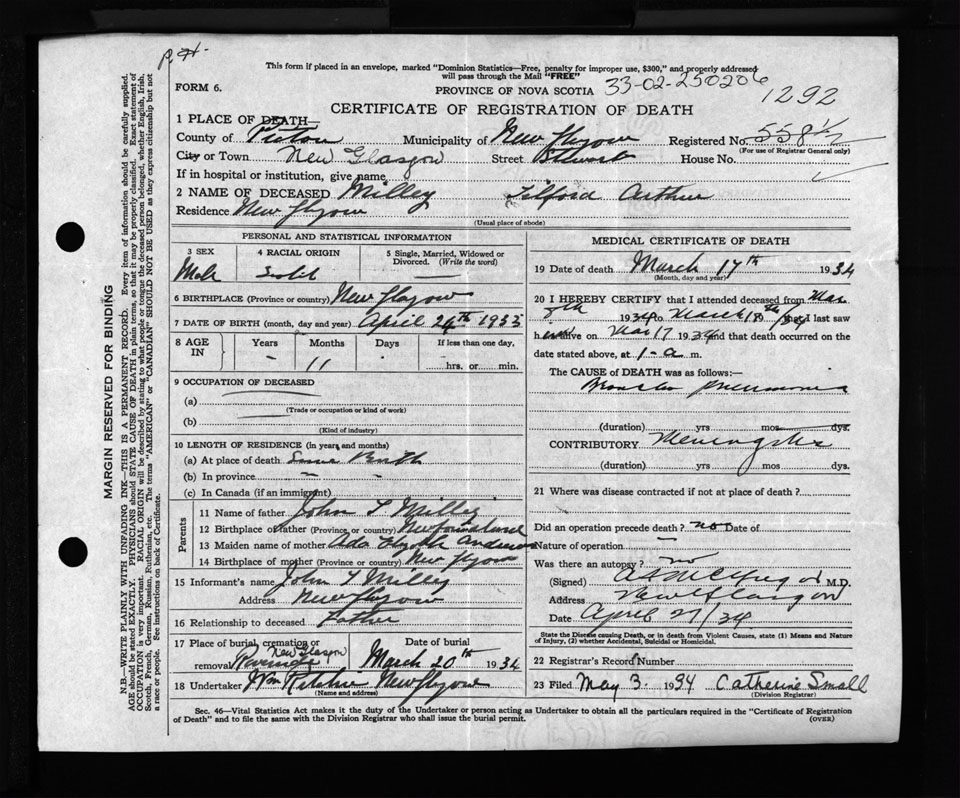 P. H.
This form if placed in an envelope, marked "Dominion Statistics—Free, penalty for improper use, $300," and properly addressed
will pass through the Mail "FREE"
FORM 6.
PROVINCE OF NOVA SCOTIA 33-02-250206
1292
CERTIFICATE OF REGISTRATION OF DEATH
1 PLACE OF DEATH—
County of Pictou Municipality of New Glasgow Registered No. 558½
(For use of Registrar General only)
City or Town New Glasgow Street Stewart House No.
If in hospital or institution, give name
2 NAME OF DECEASED Milley Tilford Arthur
Residence New Glasgow
(Usual place of abode)
PERSONAL AND STATISTICAL INFORMATION
3 SEX 4 RACIAL ORIGIN 5 Single, Married, Widowed or Divorced. (Write the word)
Male
6 BIRTHPLACE (Province or country) New Glasgow
7 DATE OF BIRTH (month, day and year) April 24th 1933
8 AGE IN Years Months Days If less than one day,
- 11 - hrs. or min.
9 OCCUPATION OF DECEASED
(a)
(Trade or occupation or kind of work)
(b)
(Kind of industry)
10 LENGTH OF RESIDENCE (in years and months)
(a) At place of death Since Birth
(b) In province -
(c) In Canada (if an immigrant)
Parents
11 Name of father John T Milley
12 Birthplace of father (Province or country) Newfoundland
13 Maiden name of mother Ada Anderson
14 Birthplace of mother (Province or country) New Glasgow
15 Informant's name John T Milley
Address New Glasgow
16 Relationship to deceased Father
17 Place of burial, cremation or removal Riverside New Glasgow Date of burial March 20th 1934
18 Undertaker Wm Ritchie New Glasgow
(Name and address)
MEDICAL CERTIFICATE OF DEATH
19 Date of death March 17th 1934
(Month, day and year)
20 I HEREBY CERTIFY that I attended deceased from Mar
1934 to March 18th /34 that I last saw
h im alive on Mar 17 1934 and that death occurred on the
date stated above, at 1-a m.
The CAUSE of DEATH was as follows:—
Broncho pneumonia
(duration) yrs mos dys.
CONTRIBUTORY Meningitis
(duration) yrs mos dys.
21 Where was disease contracted if not at place of death?
Did an operation precede death? no Date of
Nature of operation —
Was there an autopsy? no
(Signed) M.D.
Address New Glasgow
Date April 27/34
State the Disease causing Death, or in death from Violent Causes, state (1) Means and Nature
of Injury, (2) whether Accidental, Suicidal or Homicidal.
22 Registrar's Record Number
23 Filed May 3. 1934 Catherine Small
(Division Registrar)
Sec. 46—Vital Statistics Act makes it the duty of the Undertaker or person acting as Undertaker to obtain all the particulars required in the "Certificate of Registration
of Death" and to file the same with the Division Registrar who shall issue the burial permit. (OVER)
MARGIN RESERVED FOR BINDING
N.B.—WRITE PLAINLY WITH UNFADING INK—THIS IS A PERMANENT RECORD. Every item of information should be carefully supplied.
AGE should be stated EXACTLY. PHYSICIANS should STATE CAUSE OF DEATH in plain terms, so that it may be properly classified. Exact statement of
OCCUPATION is very important. RACIAL ORIGIN will be described by stating to what people or tongue the deceased person belonged, whether English, Irish,
Scotch, French, German, Russian, Ruthenian, etc. The terms "AMERICAN" or "CANADIAN" SHOULD NOT BE USED as they express citizenship but not
a race or people. See instructions on back of Certificate.